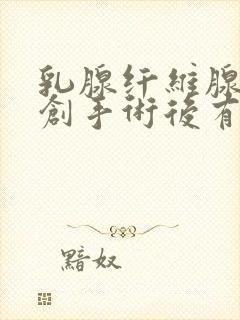 乳腺纤維腺
創手術後有
黯奴